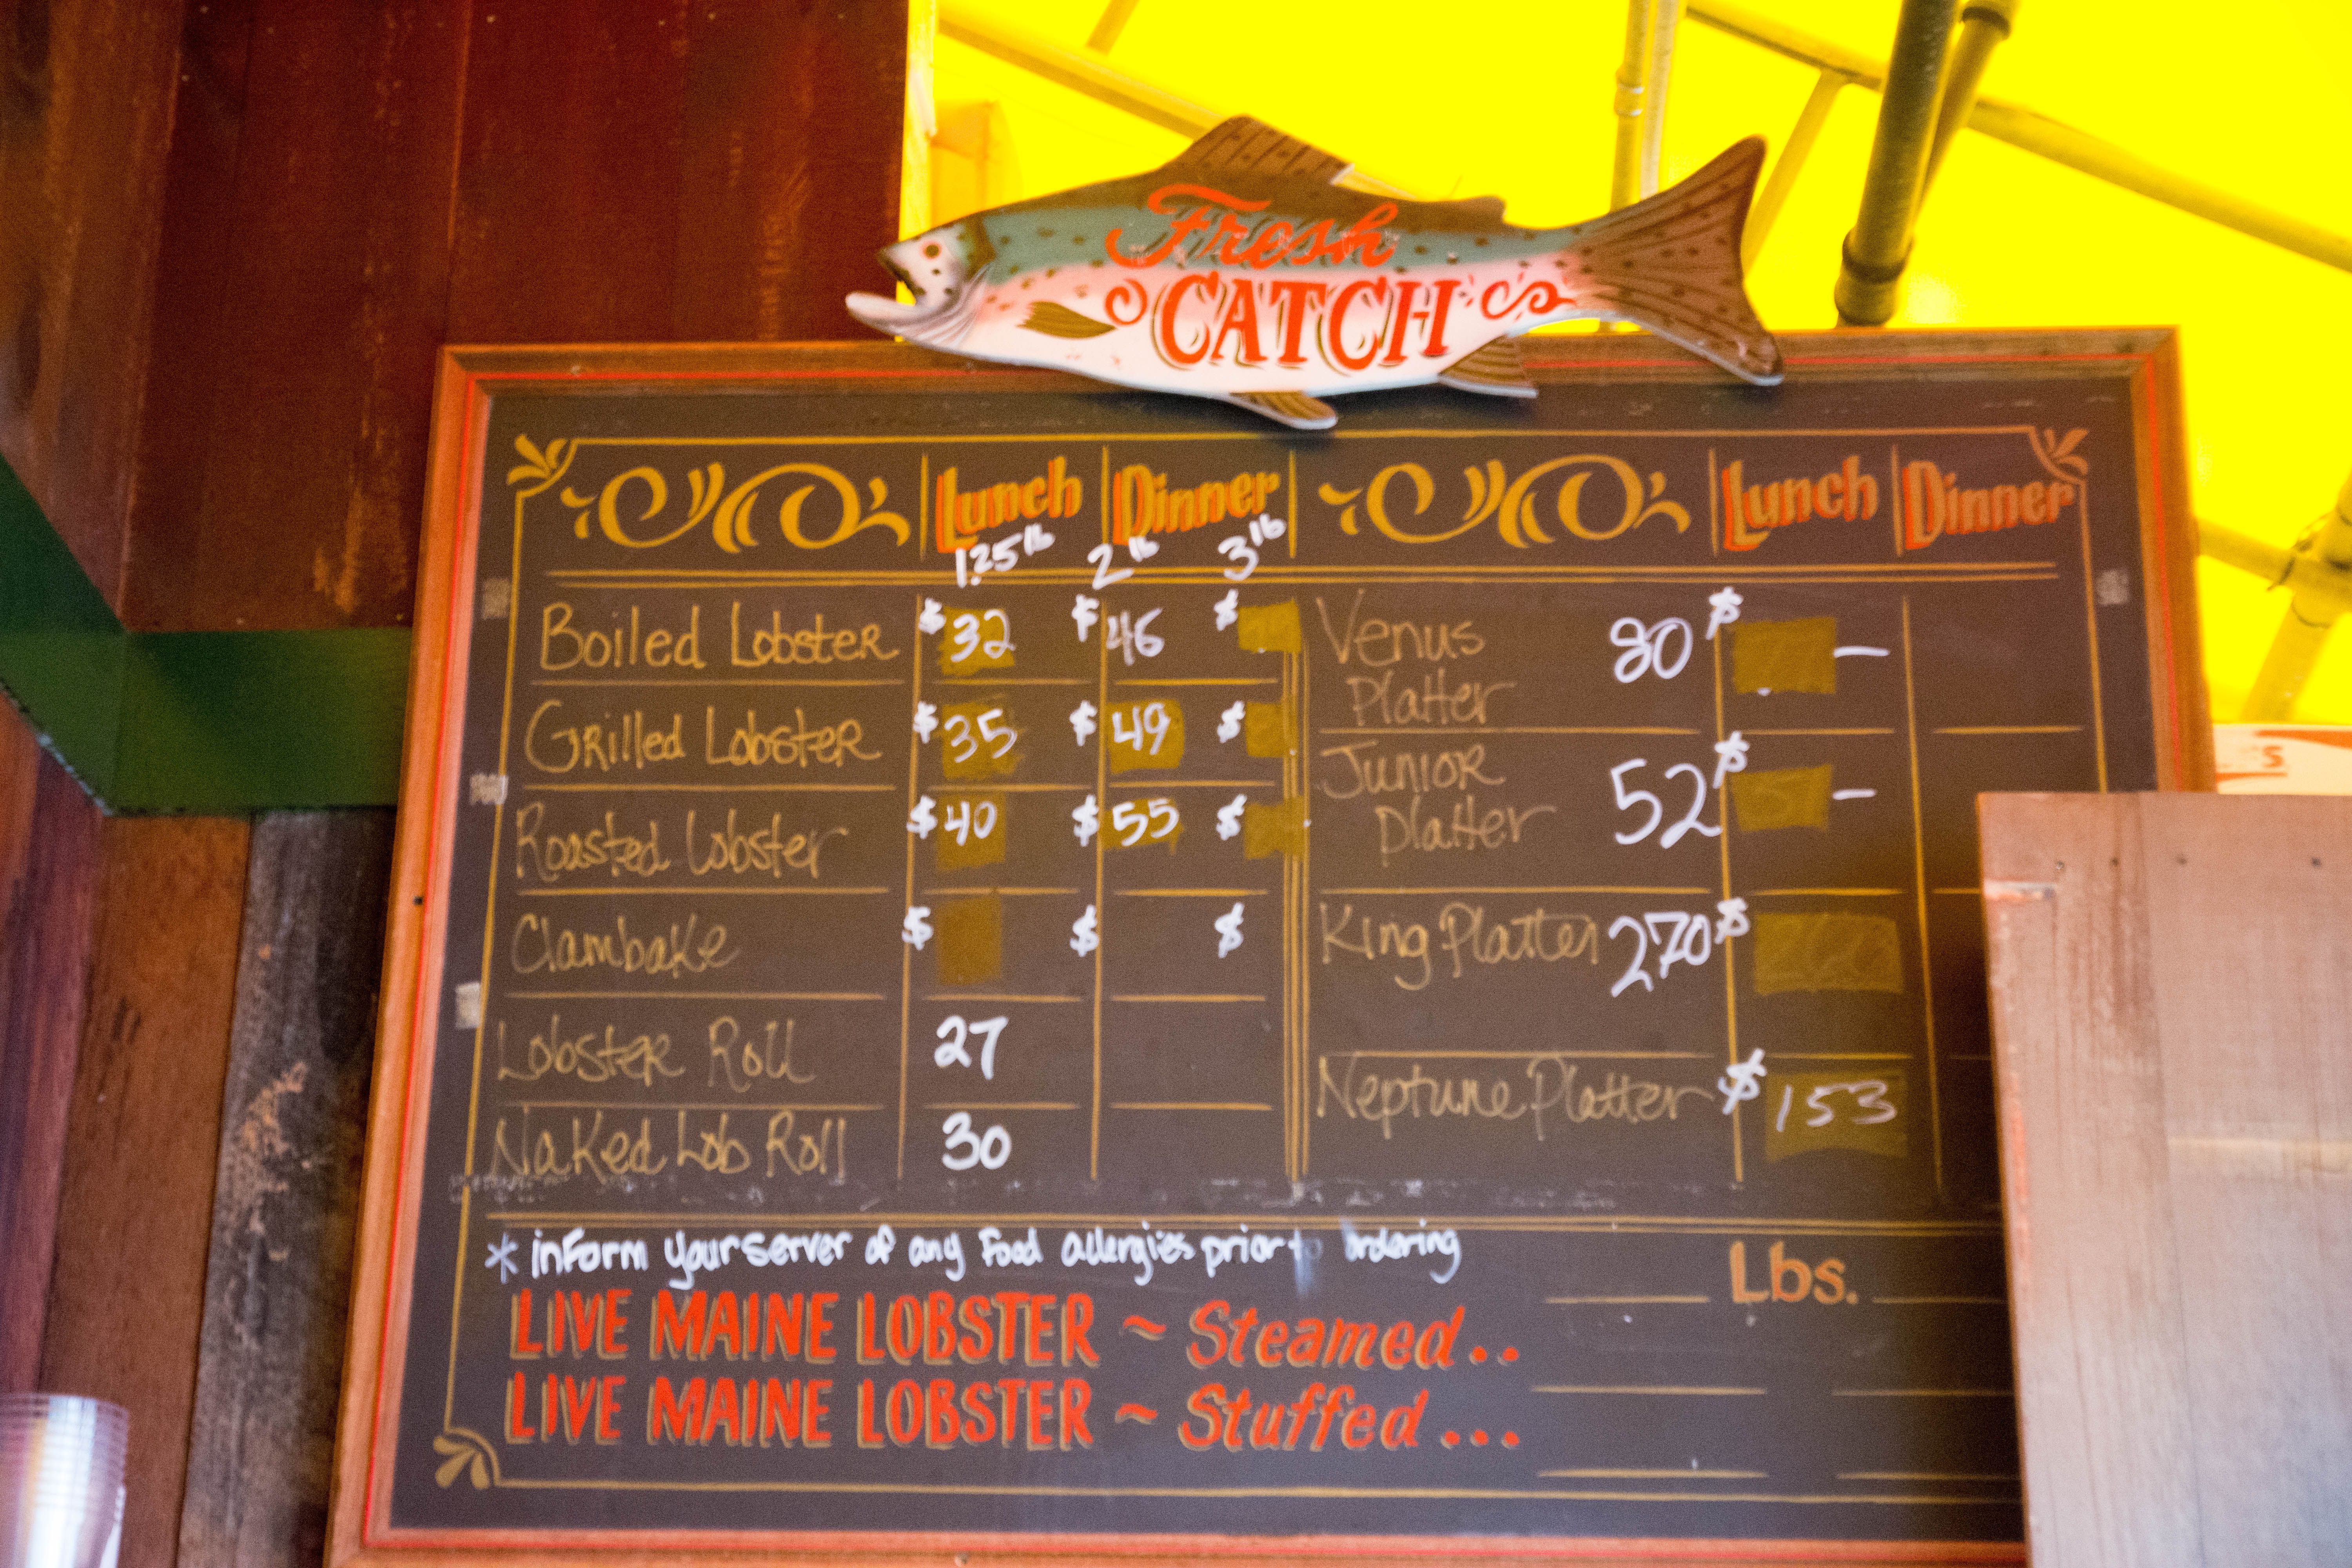 Fresh
CATCH
Lunch Dinner Lunch Dinner
1.25 lb 2 lb 3 lb
Boiled Lobster $32 $46 $
Venus Platter 80 $ –
Grilled Lobster $35 $49 $
Junior Platter 52 $ –
Roasted Lobster $40 $55 $
Clambake $ $ $
King Platter 270 $
Lobster Roll 27
Neptune Platter $153
Naked Lob Roll 30
* inform your server of any food allergies prior to ordering
Lbs.
LIVE MAINE LOBSTER ~ Steamed..
LIVE MAINE LOBSTER ~ Stuffed...